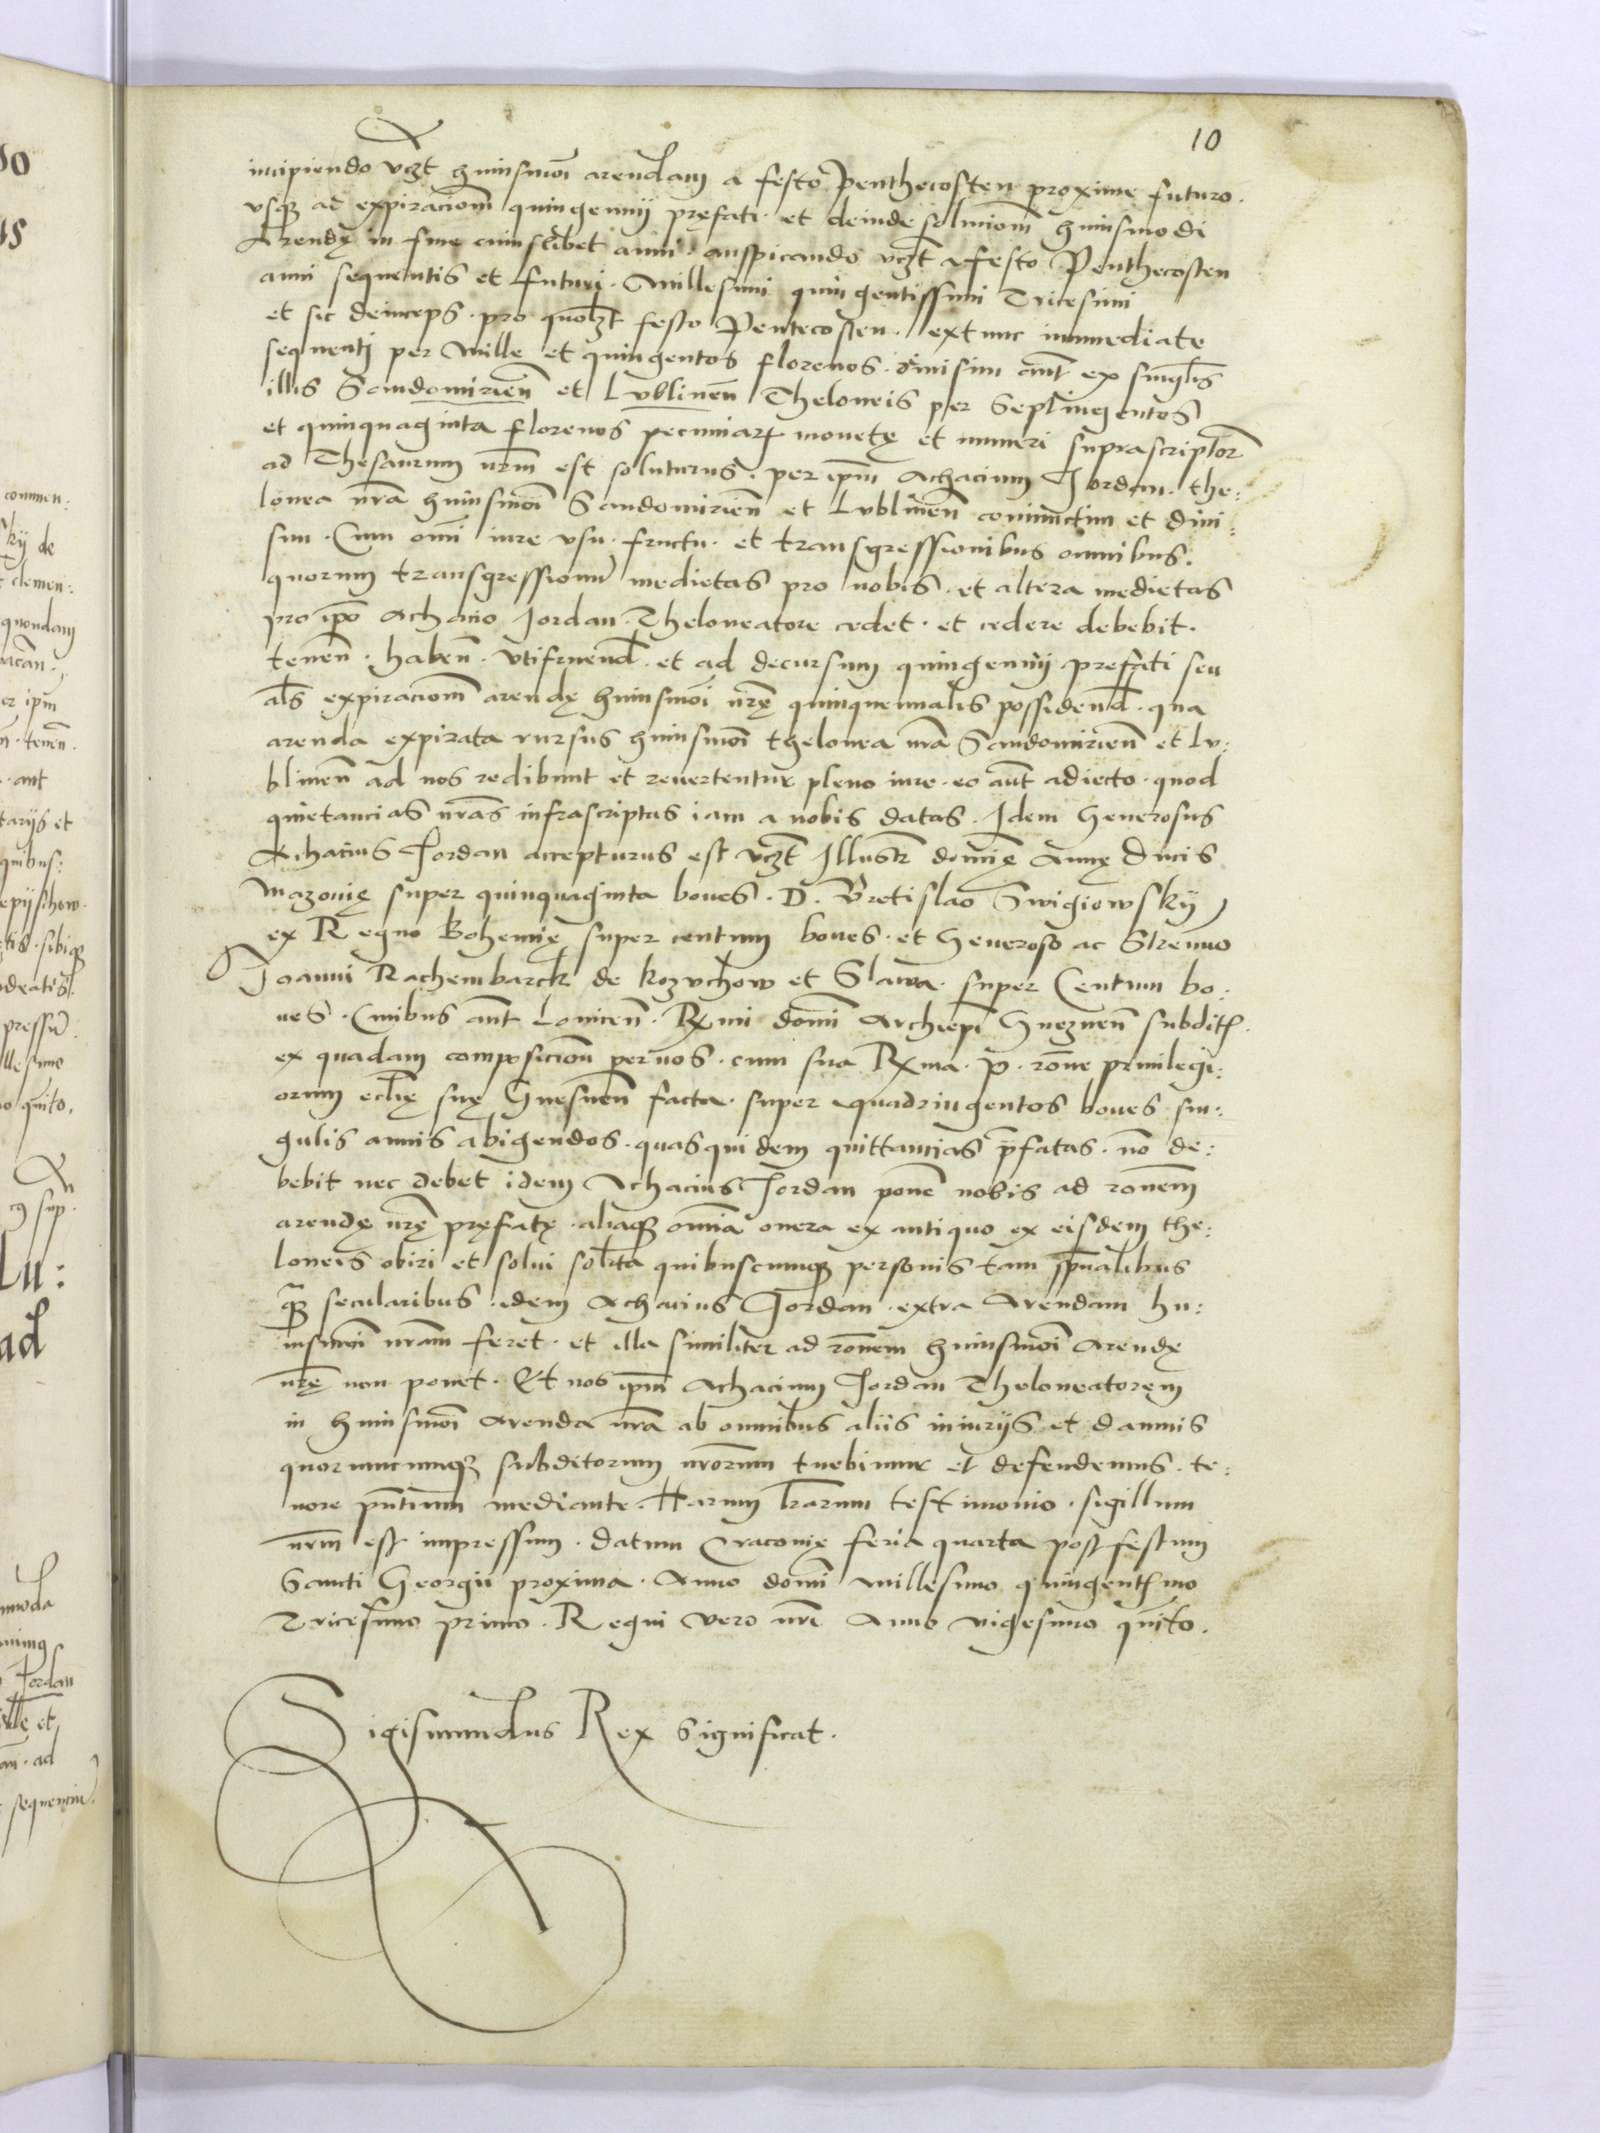 10
incipiendo vcz̄t huiusmōi arendam a festo Penthecosten proxime futuro.
vsqȝ ad expiracionē quingennij pręfati · et deinde solucionē huiusmodi
Arendę in fine cuiuslibet anni · auspicando vcz̄t a festo Penthecosten
anni sequentis et futuri · Millesimi quingentissimi Tricesimi
et sic deinceps · pro quolz̄t festo Pentecosten · extunc immediate
sequenti per Mille et quingentos florenos · diuisim aūt ex singl̄is
illis Sandomirien̄ et Lvblinen̄ Theloneis per Septingentos
et quinquaginta florenos pecuniarꝝ monetę et numeri suprascriptor̄
ad Thesaurum nr̄m est soluturus · per ip̄m Achacium Jordan · the:
lonea nr̄a huiusmōi Sandomirien̄ et Lvblinen̄ coniunctim et diui:
sim · Cum om̄i iure vsu · fructu · et transgressionibus omnibus.
quorum transgressionū medietas pro nobis · et altera medietas
pro ip̄o Achacio Jordan · Theloneatore cedet · et cedere debebit.
tenen̄ · haben̄ · vtifruend̄ · et ad decursum quingennij prefati seu
al̄s expiracionē arendę huiusmōi nr̄ę quinquennalis possidend̄ · qua
arenda expirata rursus huiusmōi thelonea nr̄a Sandomirien̄ et Lv:
blinen̄ ad nos redibunt et reuertentur pleno iure · eo aūt adiecto · quod
quietancias nr̄as infrascriptas iam a nobis datas · Idem Generosus
Achacius Jordan accepturus est vcz̄t Illustr̄ dom̄ę Annę Ducis
Mazouię super quinquaginta boues · D. Bretislao Swigiowskÿ
ex Regno Bohemię super centum boues · et Generoso ac Strenuo
Joanni Rachembarck de Kozvchow et Slawa · super Centum bo:
ues · Ciuibus aūt Louicen̄ · Rx̄mi dom̄i Archiep̄i Gneznen̄ subditꝭ.
ex quadam composicionē per nos · cum sua Rx̄ma · p̄ · rōne priuilegi:
orum eccl̄ię suę Gnesnen̄ facta · super quadringentos boues sin:
gulis annis abigendos · quasquidem quittancias p̄fatas · nō de:
bebit nec debet idem Achacius Jordan ponē nobis ad rōnem
arendę nr̄ę pręfatę · aliaqȝ om̄ia onera ex antiquo ex eisdem the:
loneis obiri et solui solita quibuscunqȝ personis tam sp̄ualibus
qȝ̄ secularibus · idem Achacius Jordan · extra Arendam hu:
iusmōi nr̄am feret · et illa similiter ad rōnem huiusmōi Arendę
nr̄ę non ponet · Et nos ip̄m Achacium Jordan Theloneatorem
in huiusmōi Arenda nr̄a ab omnibus aliis iniurijs et damnis
quorumcunqȝ subditorum nr̄orum tuebimur et defendemus · te:
nore pn̄tium mediante · Harum lr̄arum testimonio · sigillum
nr̄m est impressum · Datum Cracouię feria quarta post festum
Sancti Georgii proxima · Anno domī Millesimo quingentꝭmo
Tricesimo primo · Regni vero nr̄i Anno vigesimo quīto.
Sigismundus Rex Significat.